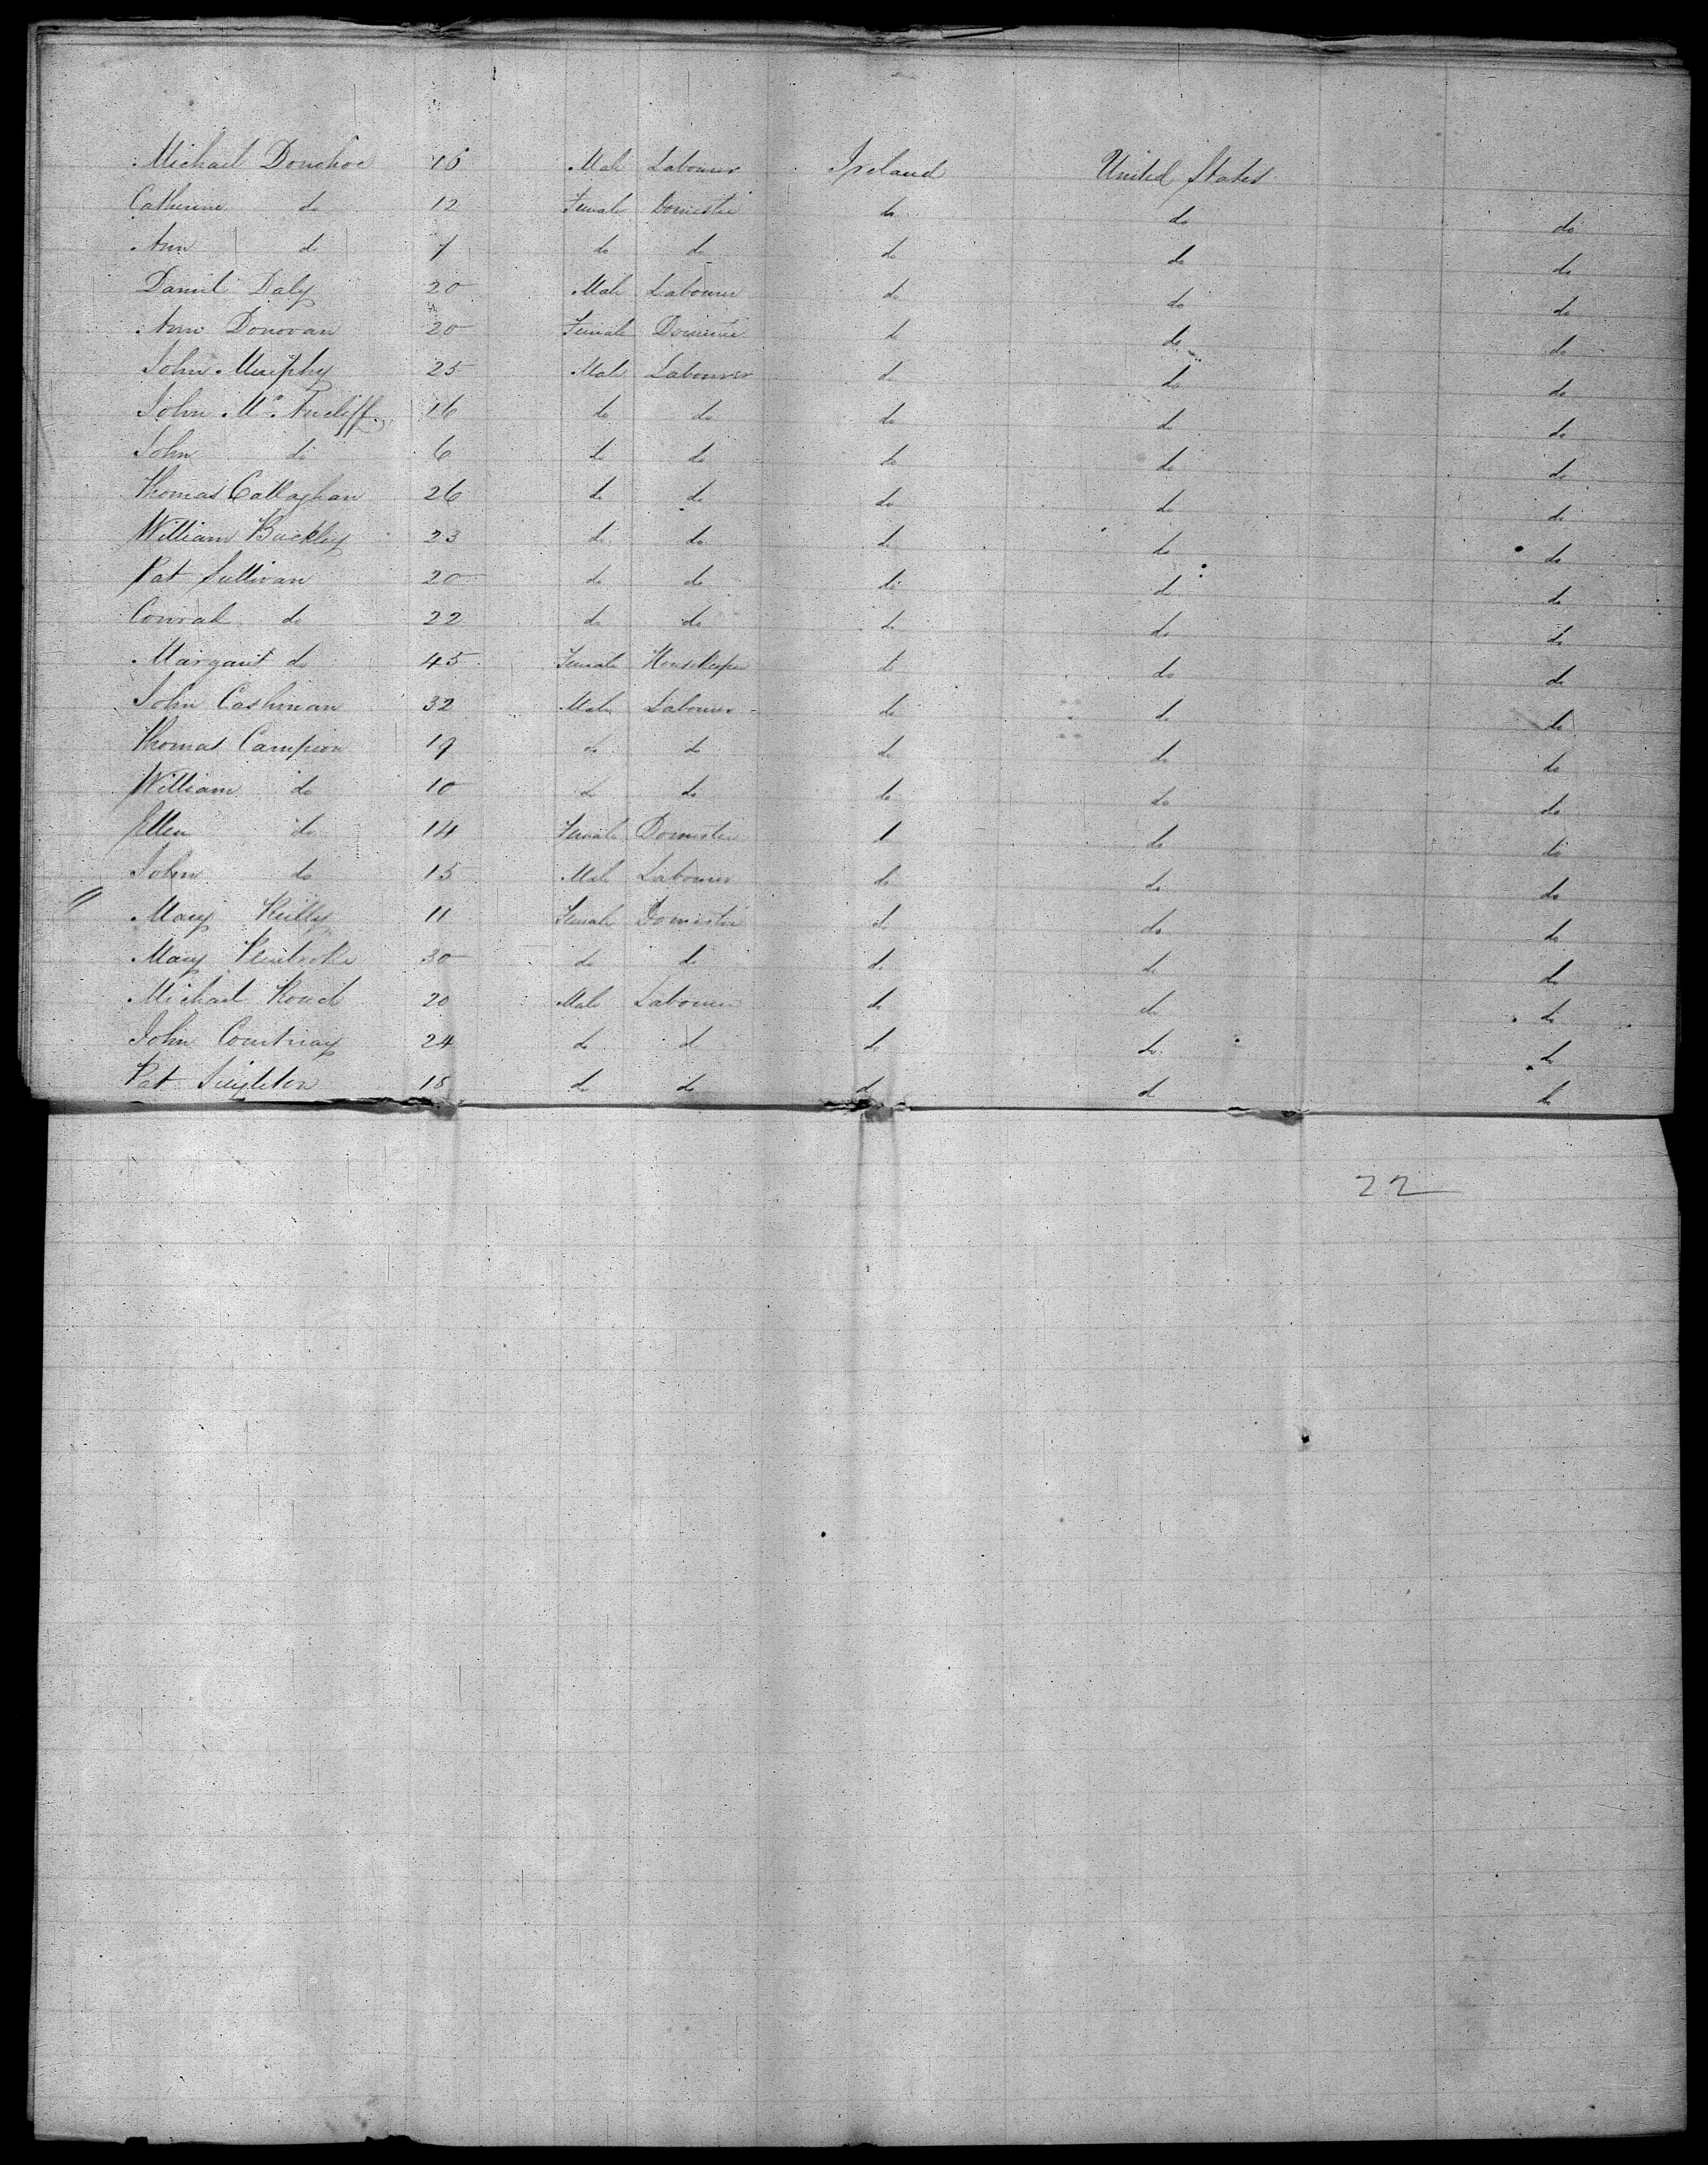 Michael Donohoe 16 Male Labourer Ireland United States
Catherine do 12 Female Domestic do do do
Ann do 7 do do do do do
Daniel Daly 20 Male Labourer do do do
Ann Donovan 20 Female Domestic do do do
John Murphy 25 Male Labourer do do do
John Mc 16 do do do do do
John do 6 do do do do do
Thomas Callaghan 26 do do do do do
William Buckley 23 do do do do do
Pat Sullivan 20 do do do do do
do 22 do do do do do
Margaret do 45 Female Housekeeper do do do
John Cashman 32 Male Labourer do do do
Thomas Campion 19 do do do do do
William do 10 do do do do do
Ellen do 14 Female Domestic do do do
John do 15 Male Labourer do do do
Mary Reilly 11 Female Domestic do do do
Mary Pembroke 30 do do do do do
Michael 20 Male Labourer do do do
John Courtnay 24 do do do do do
Pat Singleton 18 do do do do do
22